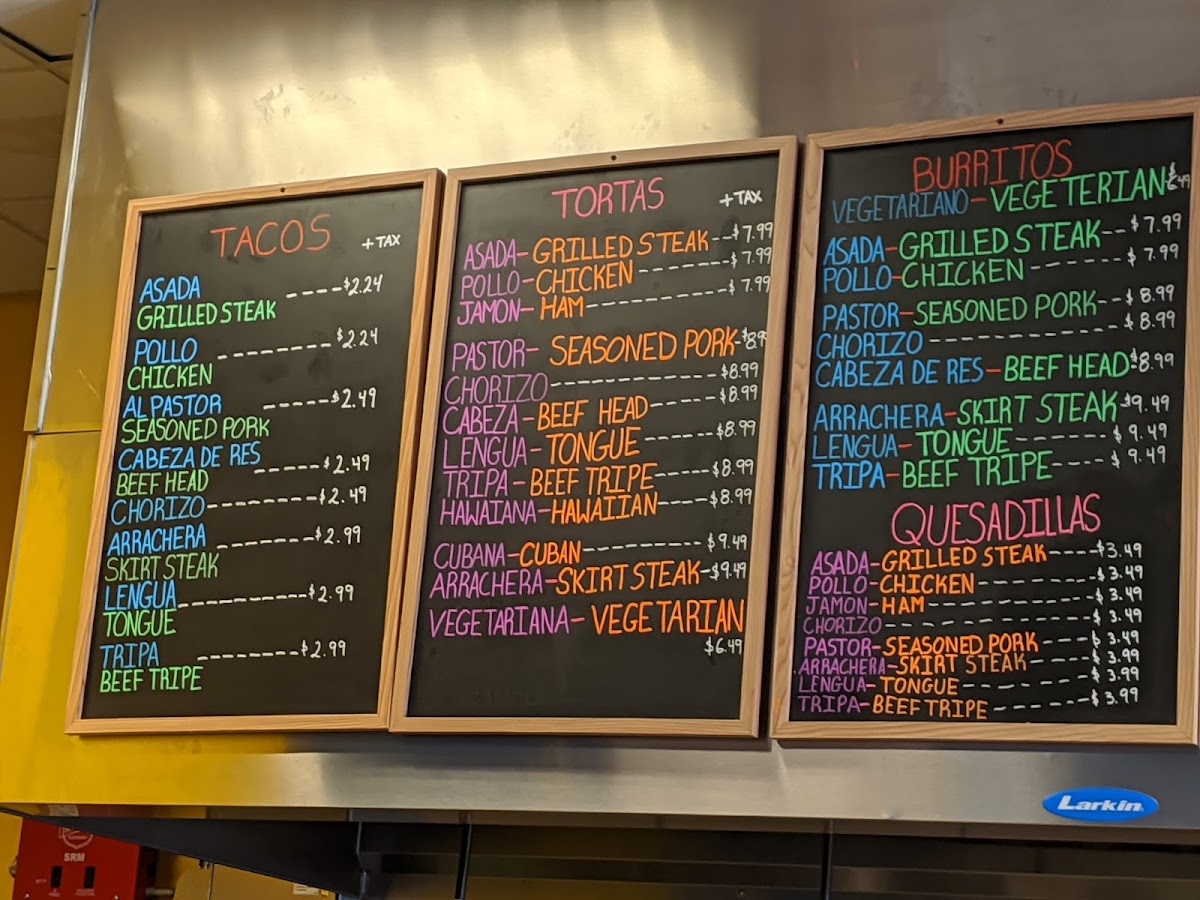 TACOS
+TAX
ASADA ----$2.24
GRILLED STEAK
POLLO ---------$2.24
CHICKEN
AL PASTOR -----$2.49
SEASONED PORK
CABEZA DE RES -----$2.49
BEEF HEAD
CHORIZO---------$2.49
ARRACHERA -------$2.99
SKIRT STEAK
LENGUA----------$2.99
TONGUE
TRIPA --------$2.99
BEEF TRIPE
TORTAS
+TAX
ASADA-GRILLED STEAK--$7.99
POLLO-CHICKEN -------$7.99
JAMON-HAM-----------$7.99
PASTOR- SEASONED PORK-$8.9
CHORIZO--------------$8.99
CABEZA-BEEF HEAD------$8.99
LENGUA-TONGUE ------$8.99
TRIPA-BEEF TRIPE-----$8.99
HAWAIANA-HAWAIIAN----$8.99
CUBANA-CUBAN---------$9.49
ARRACHERA-SKIRT STEAK-$9.49
VEGETARIANA-VEGETARIAN
$6.49
BURRITOS
VEGETARIANO-VEGETERIAN
ASADA-GRILLED STEAK--$7.99
POLLO-CHICKEN ------$7.99
PASTOR-SEASONED PORK--$8.99
CHORIZO--------------$8.99
CABEZA DE RES-BEEF HEAD$8.99
ARRACHERA-SKIRT STEAK-$9.49
LENGUA-TONGUE -------$9.49
TRIPA-BEEF TRIPE----$9.49
QUESADILLAS
ASADA-GRILLED STEAK----$3.49
POLLO-CHICKEN---------$3.49
JAMON-HAM------------$3.49
CHORIZO---------------$3.49
PASTOR-SEASONED PORK----$3.49
ARRACHERA-SKIRT STEAK----$3.99
LENGUA-TONGUE --------$3.99
TRIPA-BEEF TRIPE------$3.99
Larkin
SRM